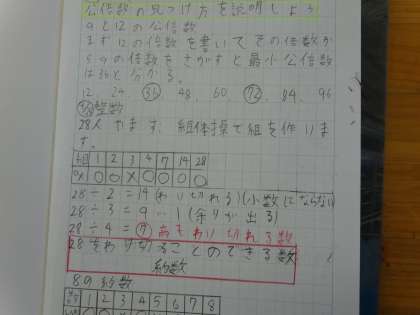 公倍数の見つけ方を説明しよう
9と12の公倍数
まず12の倍数を書いてその倍数か
ら9の倍数をさがすと最小公倍数
は36と分かる。
12、24 36、48、60、72、84、96
整数
28人 います、組体操で組を作りま
す。
組 1 2 3 4 7 14 28
○× ○ ○ × ○ ○ ○ ○
28÷2=14(わり切れる)(小数にならない)
28÷3=9…1(余りが出る)
28÷4=⑦あまりわり切れる数
28をわりきることのできる数
約数
8の約数
1 2 3 4 5 6 7 8